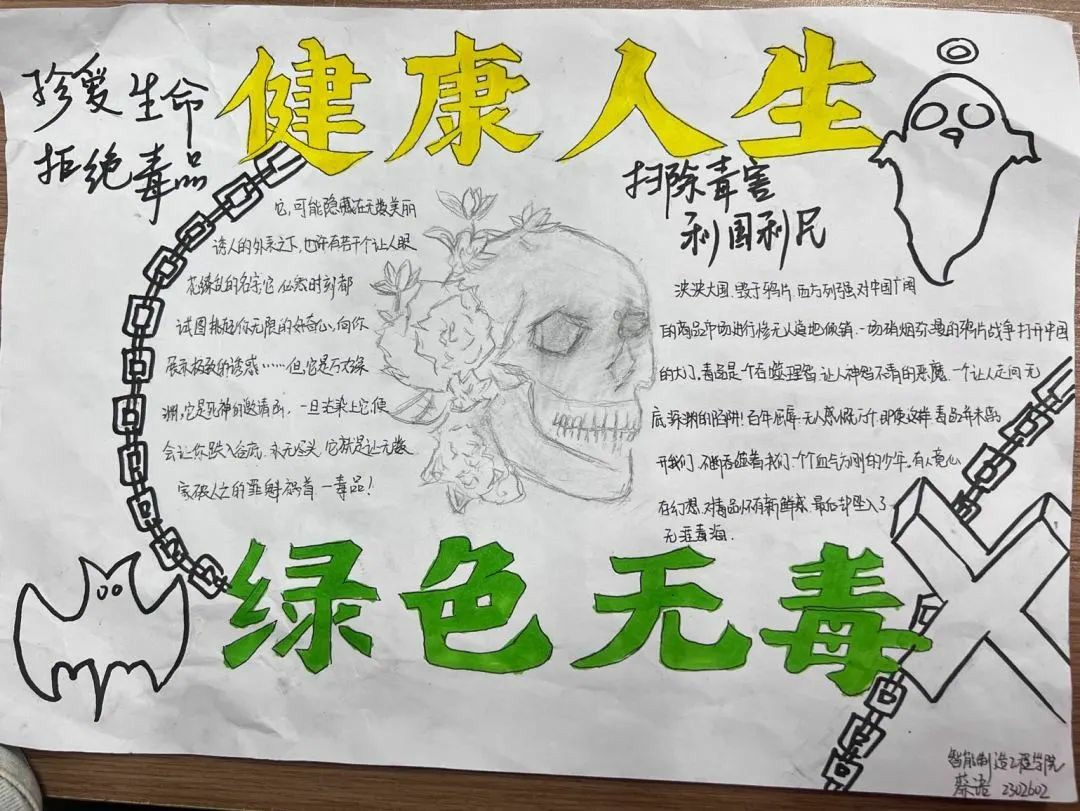 健康人生
珍爱生命
拒绝毒品
扫除毒害
利国利民
它,可能隐藏在无数美丽
诱人的外表之下,也许有若干个让人眼
花缭乱的名字它,仏然时刻都
试图挑起你无限的好奇心,向你
展示极致的诱惑……但,它是万丈深
渊,它是死神的邀请函,一旦沾染上它,便
会让你跌入谷底,永无尽头,它就是让无数
家破人亡的罪魁祸首一毒品!
泱泱大国,毁于鸦片,西方列强,对中国广阔
的商品市场进行惨无人道地倾销.一场硝烟弥漫的鸦片战争打开中国
的大门,毒品是一个吞噬理智,让人神智不清的恶魔,一个让人走向无
底深渊的陷阱!百年屈辱,无人感慨万千,即使这样,毒品并未离
开我们,不断吞噬着我们,一个个血气方刚的少年,有人竟心
在幻想,对毒品怀有新鲜感,最后却坠入了
无涯毒海.
绿色无毒
智能制造工程学院
2302602